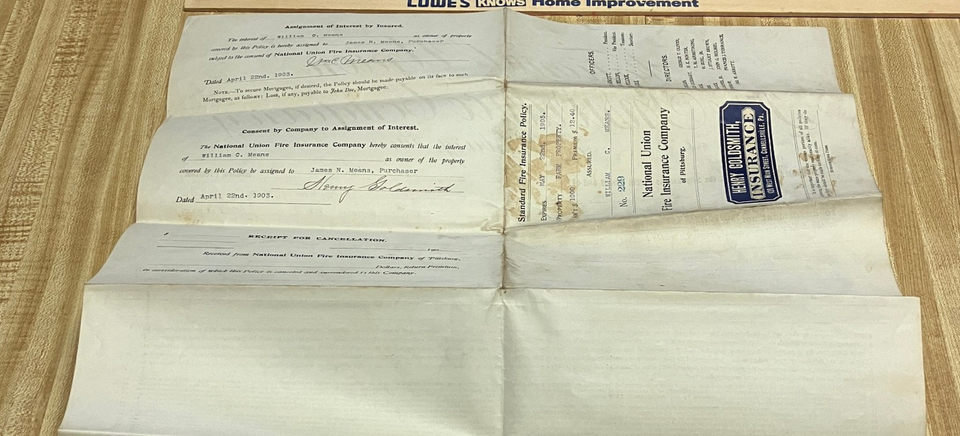 LOWE'S KNOWS Home Improvement
Assignment of Interest by Insured.
The interest of William C. Means as owner of property
covered by this Policy is hereby assigned to James N. Means, Purchaser
subject to the consent of National Union Fire Insurance Company.
Wm C Means
Dated April 22nd. 1903.
NOTE.—To secure Mortgages, if desired, the Policy should be made payable on its face to such
Mortgagee, as follows: Loss, if any, payable to John Doe, Mortgagee.
Consent by Company to Assignment of Interest.
The National Union Fire Insurance Company hereby consents that the interest
of William C. Means as owner of the property
covered by this Policy be assigned to James N. Means, Purchaser
Henry Goldsmith
Dated April 22nd. 1903.
$
RECEIPT FOR CANCELLATION.
Received from National Union Fire Insurance Company of Pittsburg,
Dollars, Return Premium,
in consideration of which this Policy is canceled and surrendered to this Company.
OFFICERS.
DIRECTORS.
Standard Fire Insurance Policy.
EXPIRES MAY 1903.
PROPERTY FARM PROPERTY.
PREMIUM $
ASSURED.
WILLIAM C. MEANS.
No. 229
National Union
Fire Insurance Company
of Pittsburg.
HENRY GOLDSMITH,
INSURANCE
CONNELLSVILLE, PA.